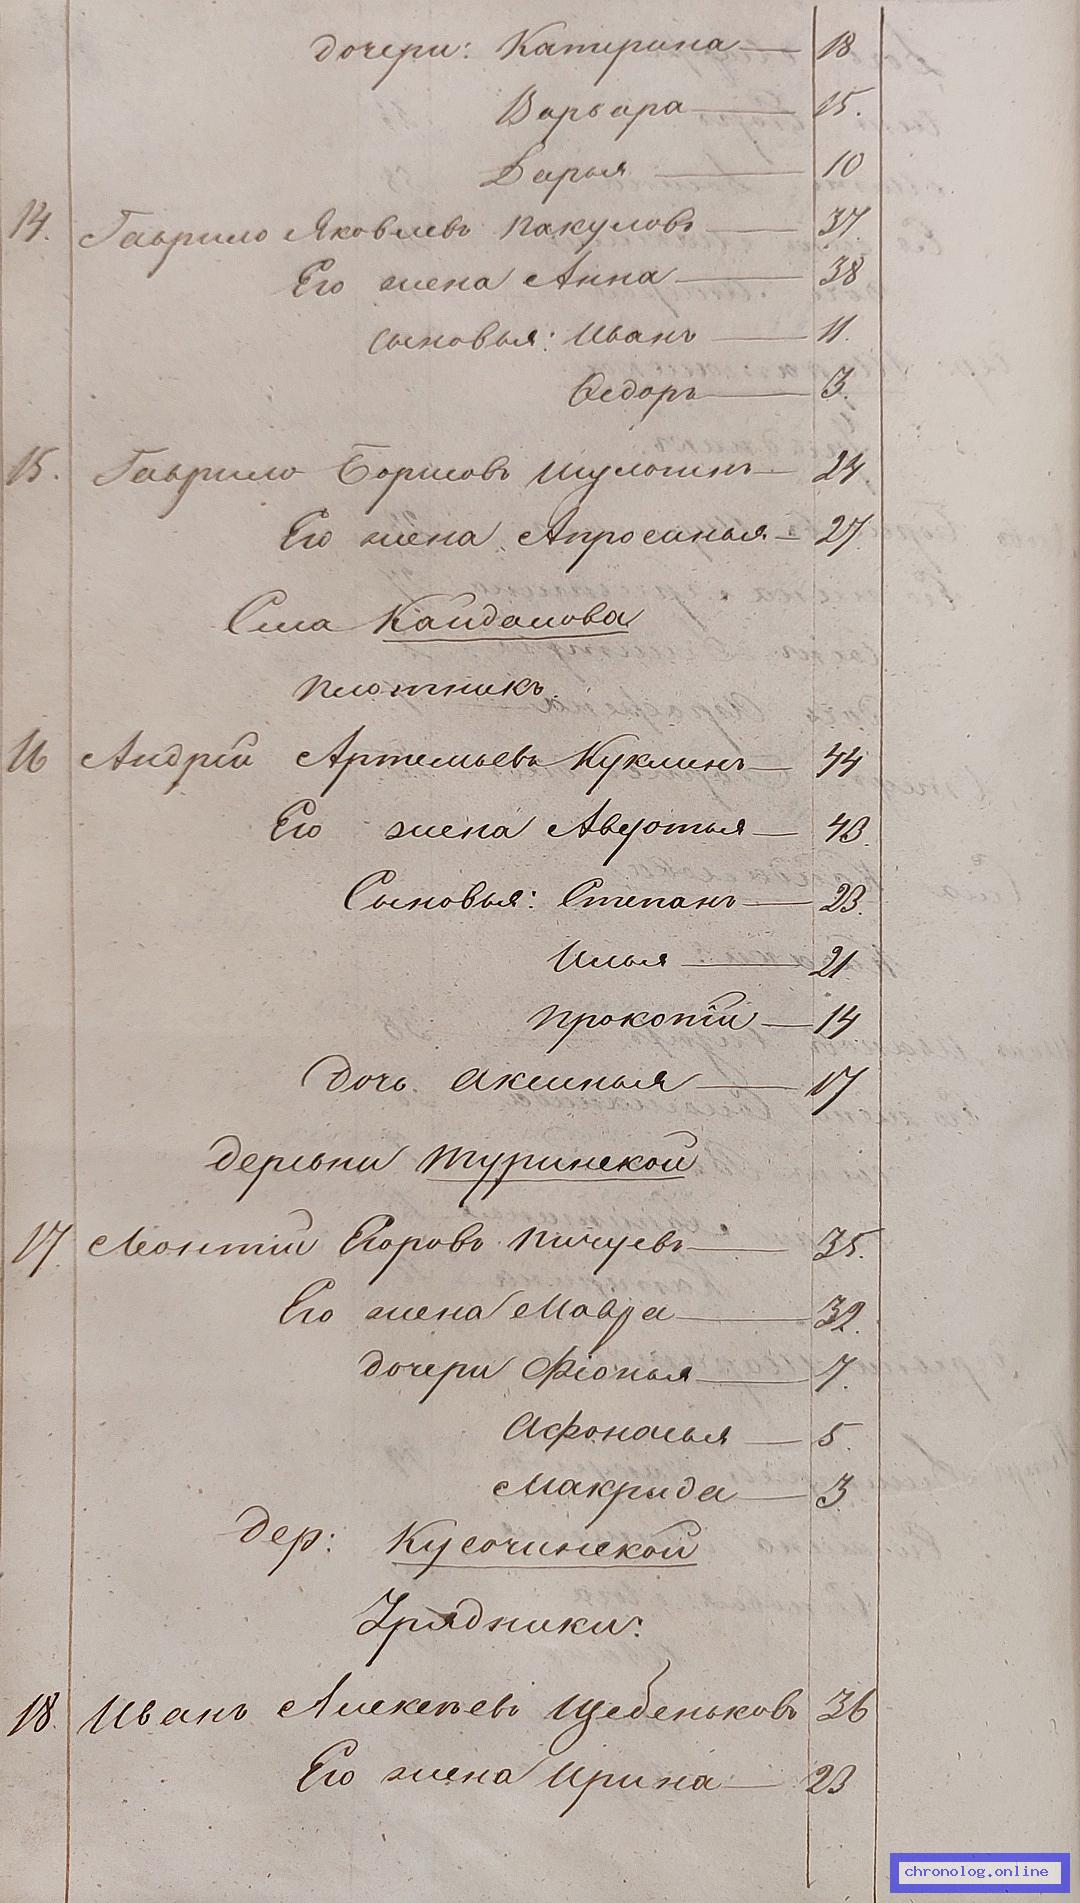 дочери: Катерина — 18
Варвара — 15.
Дарья — 10
14. Гаврило Яковлевъ Пакуловъ — 37.
Его жена Анна — 38
сыновья: Иванъ — 11.
Ѳедоръ — 3.
15. Гаврило Борисовъ Шулогинъ — 24.
Его жена Апросинья — 27.
Села Кайдалова
Плотникъ.
16 Андрей Артемьевъ Куклинъ — 44
Его жена Авдотья — 43.
Сыновья: Степанъ — 23.
Илья — 21
Прокопій — 14
Дочь Аксинья — 17
деревни Туринской
17. Леонтій Егоровъ Пичуевъ — 35.
Его жена Мавра — 32.
дочери Фіонья — 7.
Афонасья — 5.
Макрида — 3
дер: Кусочинской
Урядники:
18. Иванъ Алексѣевъ Щебеньковъ 36
Его жена Ирина — 23
chronolog.online